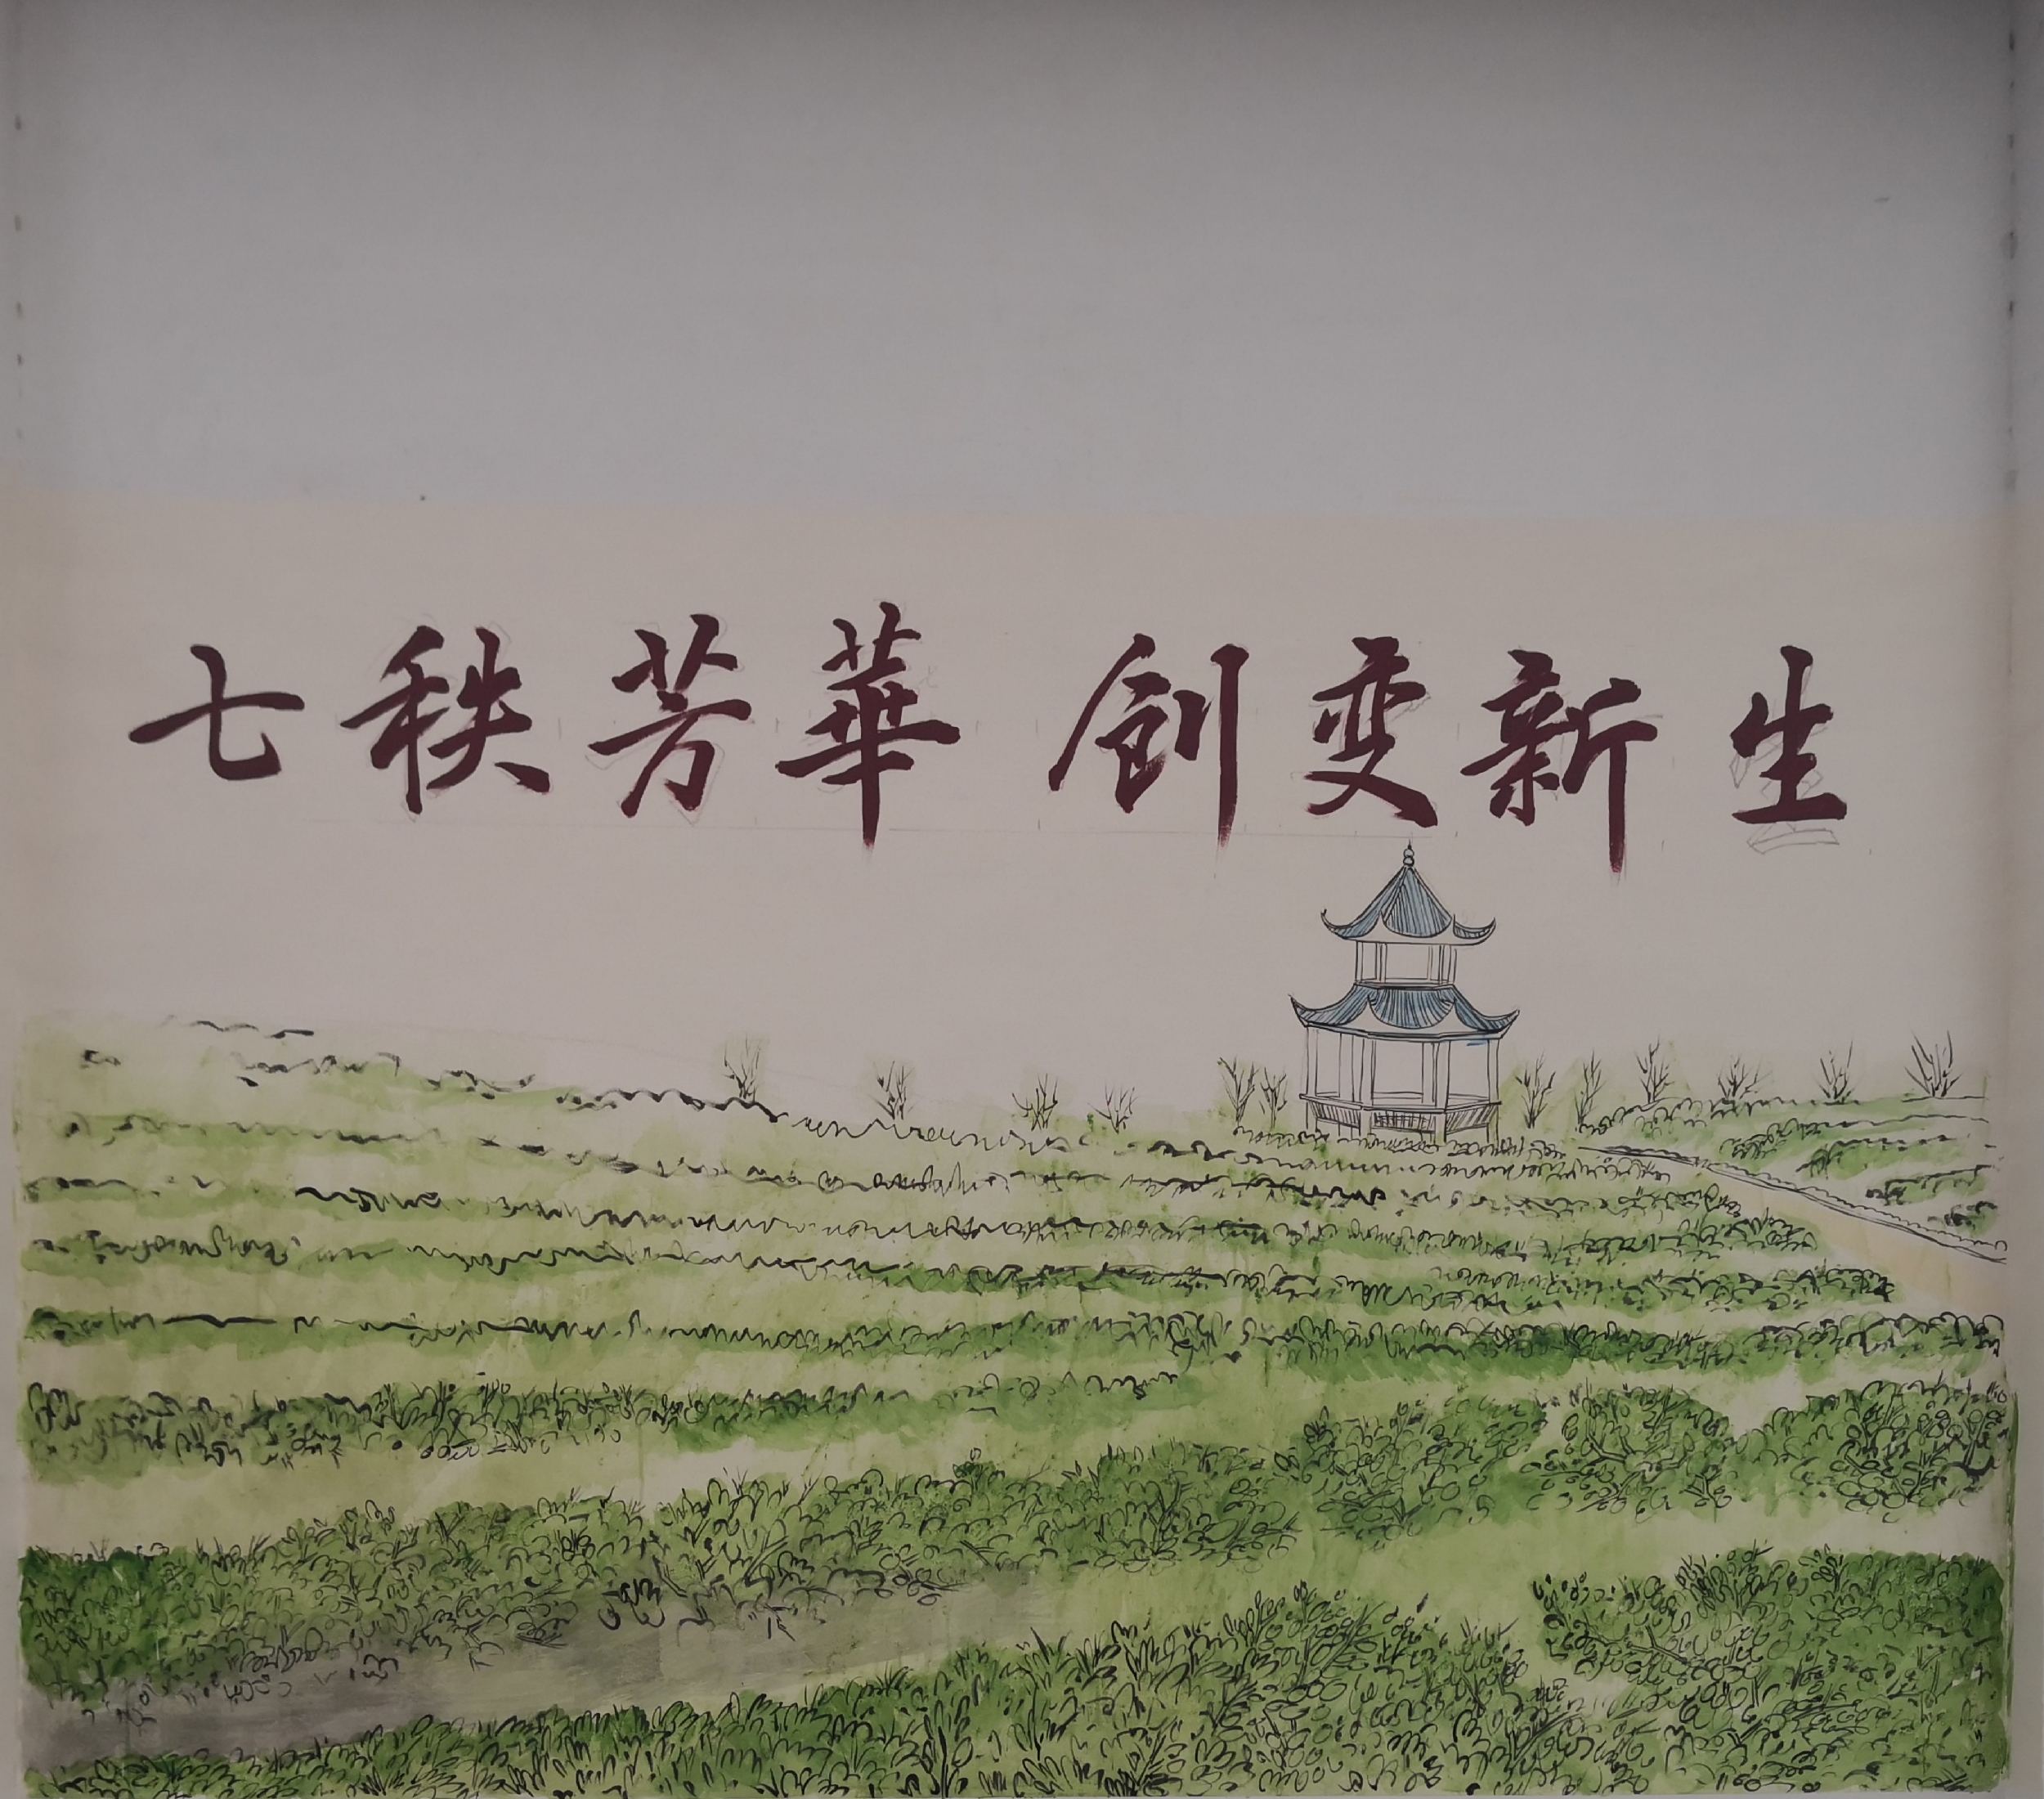 七秩芳華 创变新生